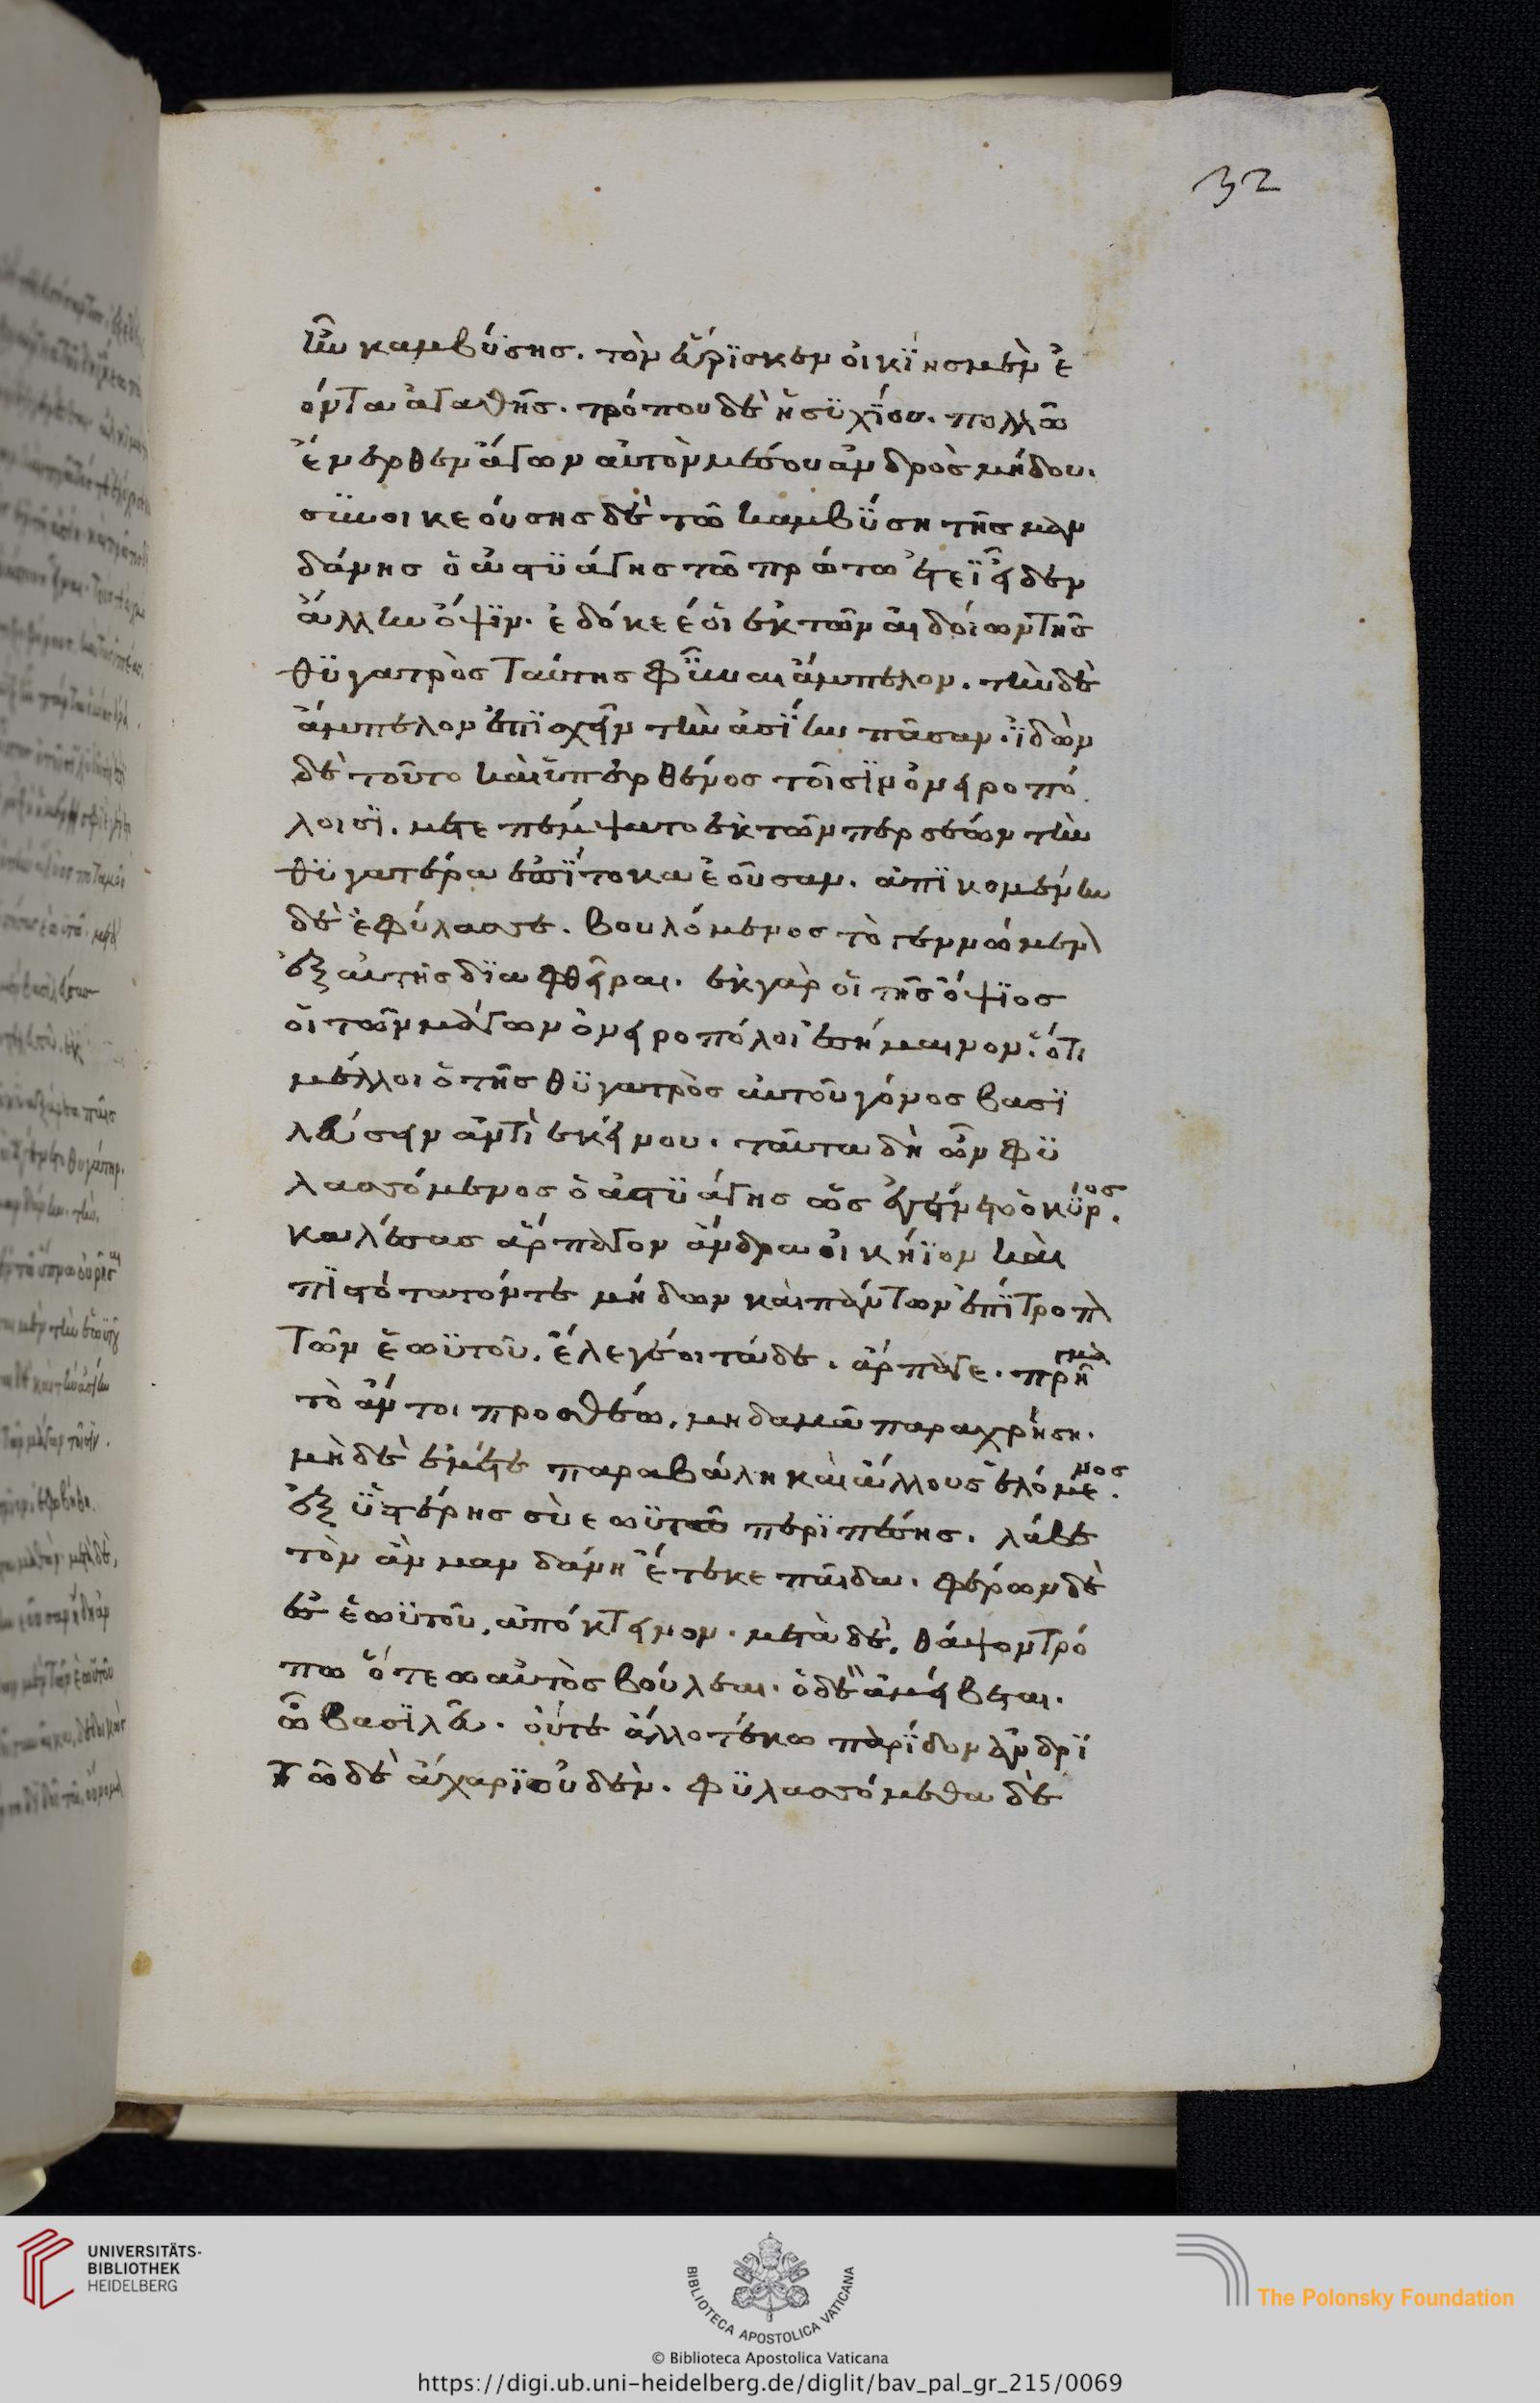 32
ἦν καμβύσης. τὸν εὕρισκεν οἰκίης μὲν ἐ
όντα ἀγαθῆς. τρόπου δὲ ἡσυχίου. πολλῶ
ἔνερθεν ἄγων αὐτὸν μέσου ἀνδρὸς μήδου.
συνοικεούσης δὲ τῶ καμβύση τῆς μαν
δάνης ὁ ἀστυάγης τῶ πρώτω ἔτεϊ εἶδεν
ἄλλην ὄψιν. ἐδόκεέ οἱ ἐκ τῶν αἰδοίων τῆς
θυγατρὸς ταύτης φῦναι ἄμπελον. τὴν δὲ
ἄμπελον ἐπισχεῖν τὴν ἀσίην πᾶσαν. ἰδὼν
δὲ τοῦτο καὶ ὑπερθέμενος τοῖσιν ὀνειροπό
λοισι. μετεπέμψατο ἐκ τῶν περσέων τὴν
θυγατέρα ἐπίτοκα ἐοῦσαν. ἀπικομένην
δὲ ἐφύλασσε. βουλόμενος τὸ γεννώμεν
ἐξ αὐτῆς διαφθεῖραι. ἐκ γάρ οἱ τῆς ὄψιος
οἱ τῶν μάγων ὀνειροπόλοι ἐσήμαινον. ὅτι
μέλλοι ὁ τῆς θυγατρὸς αὐτοῦ γόνος βασι
λεύσειν ἀντὶ ἐκείνου. ταῦτα δὴ ὦν φυ
λασσόμενος ὁ ἀστυάγης ὡς ἐγένετο ὁ κῦρος.
καλέσας ἅρπαγον ἄνδρα οἰκήϊον καὶ
πιστότατόν τε μήδων καὶ πάντων ἐπίτροπ
τῶν ἑωϋτοῦ. ἔλεγέ οἱ τάδε. ἅρπαγε. πρῆγμα
τὸ ἄν τοι προσθέω, μηδαμᾶ παραχρήση.
μὴ δὲ ἐμέ τε παραβάλη καὶ ἄλλους ἑλόμενος.
ἐξ ὑστέρης σὺ ἑωϋτῶ περιπέσης. λάβε
τὸν ἂν μανδάνη ἔτεκε παῖδα. φέρων δὲ
ἐς ἑωϋτοῦ, ἀπόκτεινον. μετὰ δὲ, θάψον τρό
πω ὅτεω αὐτὸς βούλεαι. ὁ δὲ ἀμείβεται.
ὦ βασιλεῦ. οὔτε ἄλλοτέ κω παρίδον ἀνδρὶ
τῶδε ἄχαρι οὐδέν. φυλασσόμεθα δὲ
UNIVERSITÄTS-
BIBLIOTHEK
HEIDELBERG
BIBLIOTECA APOSTOLICA VATICANA
The Polonsky Foundation
© Biblioteca Apostolica Vaticana
https://digi.ub.uni-heidelberg.de/diglit/bav_pal_gr_215/0069